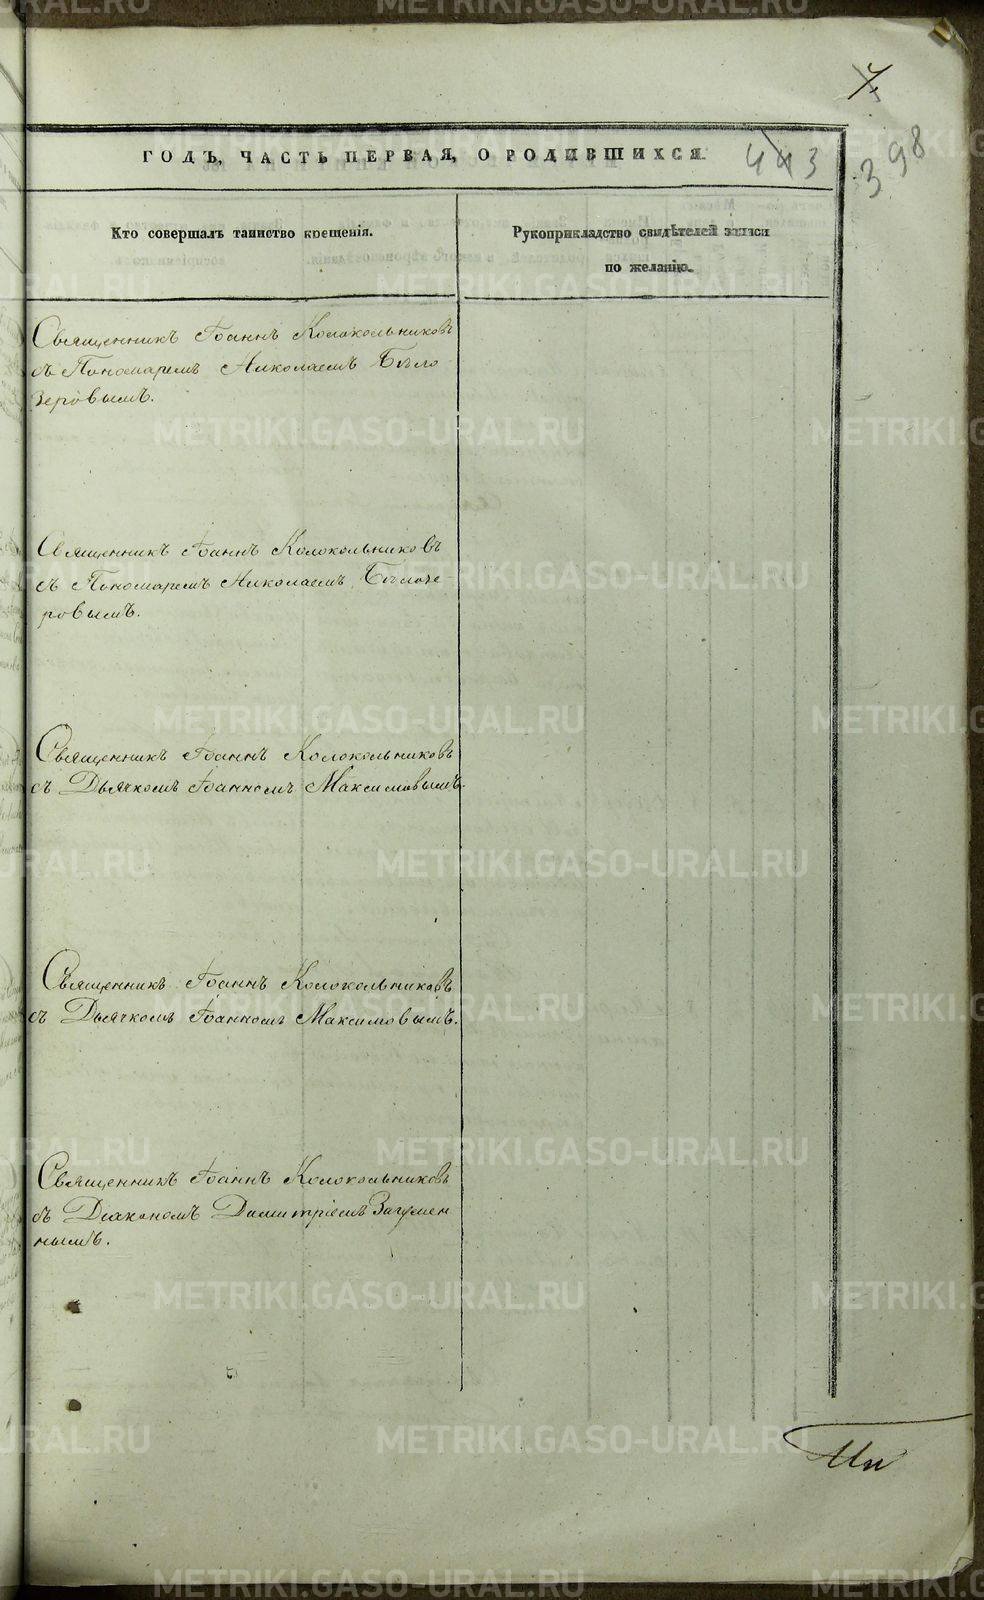 7
ГОДЪ, ЧАСТЬ ПЕРВАЯ, О РОДИВШИХСЯ. 443 398
Кто совершалъ таинство крещенія.
Рукоприкладство свидѣтелей записи
по желанію.
Священникъ Іоаннъ Колокольниковъ
съ Пономаремъ Николаемъ Бѣло
зеровымъ.
Священникъ Іоаннъ Колокольниковъ
съ Пономаремъ Николаемъ Бѣлозе-
ровымъ.
Священникъ Іоаннъ Колокольниковъ
съ Дьячкомъ Іоанномъ Максимовымъ.
Священникъ Іоаннъ Колокольниковъ
съ Дьячкомъ Іоанномъ Максимовымъ.
Священникъ Іоаннъ Колокольниковъ
съ Діакономъ Димитріемъ Загумен
нымъ.
METRIKI.GASO-URAL.RU